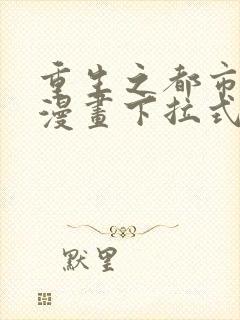 重生之都市
漫畫下拉式
默里